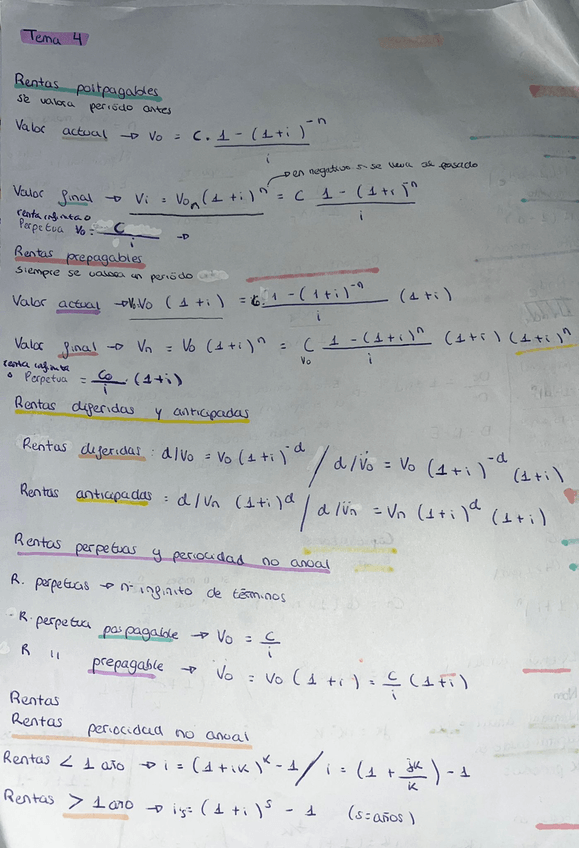 Tema 4
Rentas postpagables
se valora período antes
Valor actual → Vo = C. 1 - (1+i)^-n / i
→ en negativo si se lleva al pasado
Valor final → Vi = Vo_n (1+i)^n = C 1 - (1+i)^n / i
renta infinita o
Perpetua Vo = C / i →
Rentas prepagables
siempre se valora un período
Valor actual → Vo (1+i) = C. 1 - (1+i)^-n / i (1+i)
Valor final → Vn = Vo (1+i)^n = C 1 - (1+i)^n / i (1+i) (1+i)^n
Vo
renta infinita
o Perpetua = Co / i . (1+i)
Rentas diferidas y anticipadas
Rentas diferidas : d/Vo = Vo (1+i)^-d / d/V̈o = Vo (1+i)^-d (1+i)
Rentas anticipadas = d/Vn (1+i)^d / d/V̈n = Vn (1+i)^d (1+i)
Rentas perpetuas y periocidad no anual
R. perpetuas → nº infinito de términos
- R. perpetua pospagable → Vo = C / i
R " prepagable → V̈o = Vo (1+i) = C / i (1+i)
Rentas
Rentas periocidad no anual
Rentas < 1 año → i = (1+ik)^k - 1 / i = (1 + jk / k) - 1
Rentas > 1 año → is = (1+i)^s - 1 (s = años)